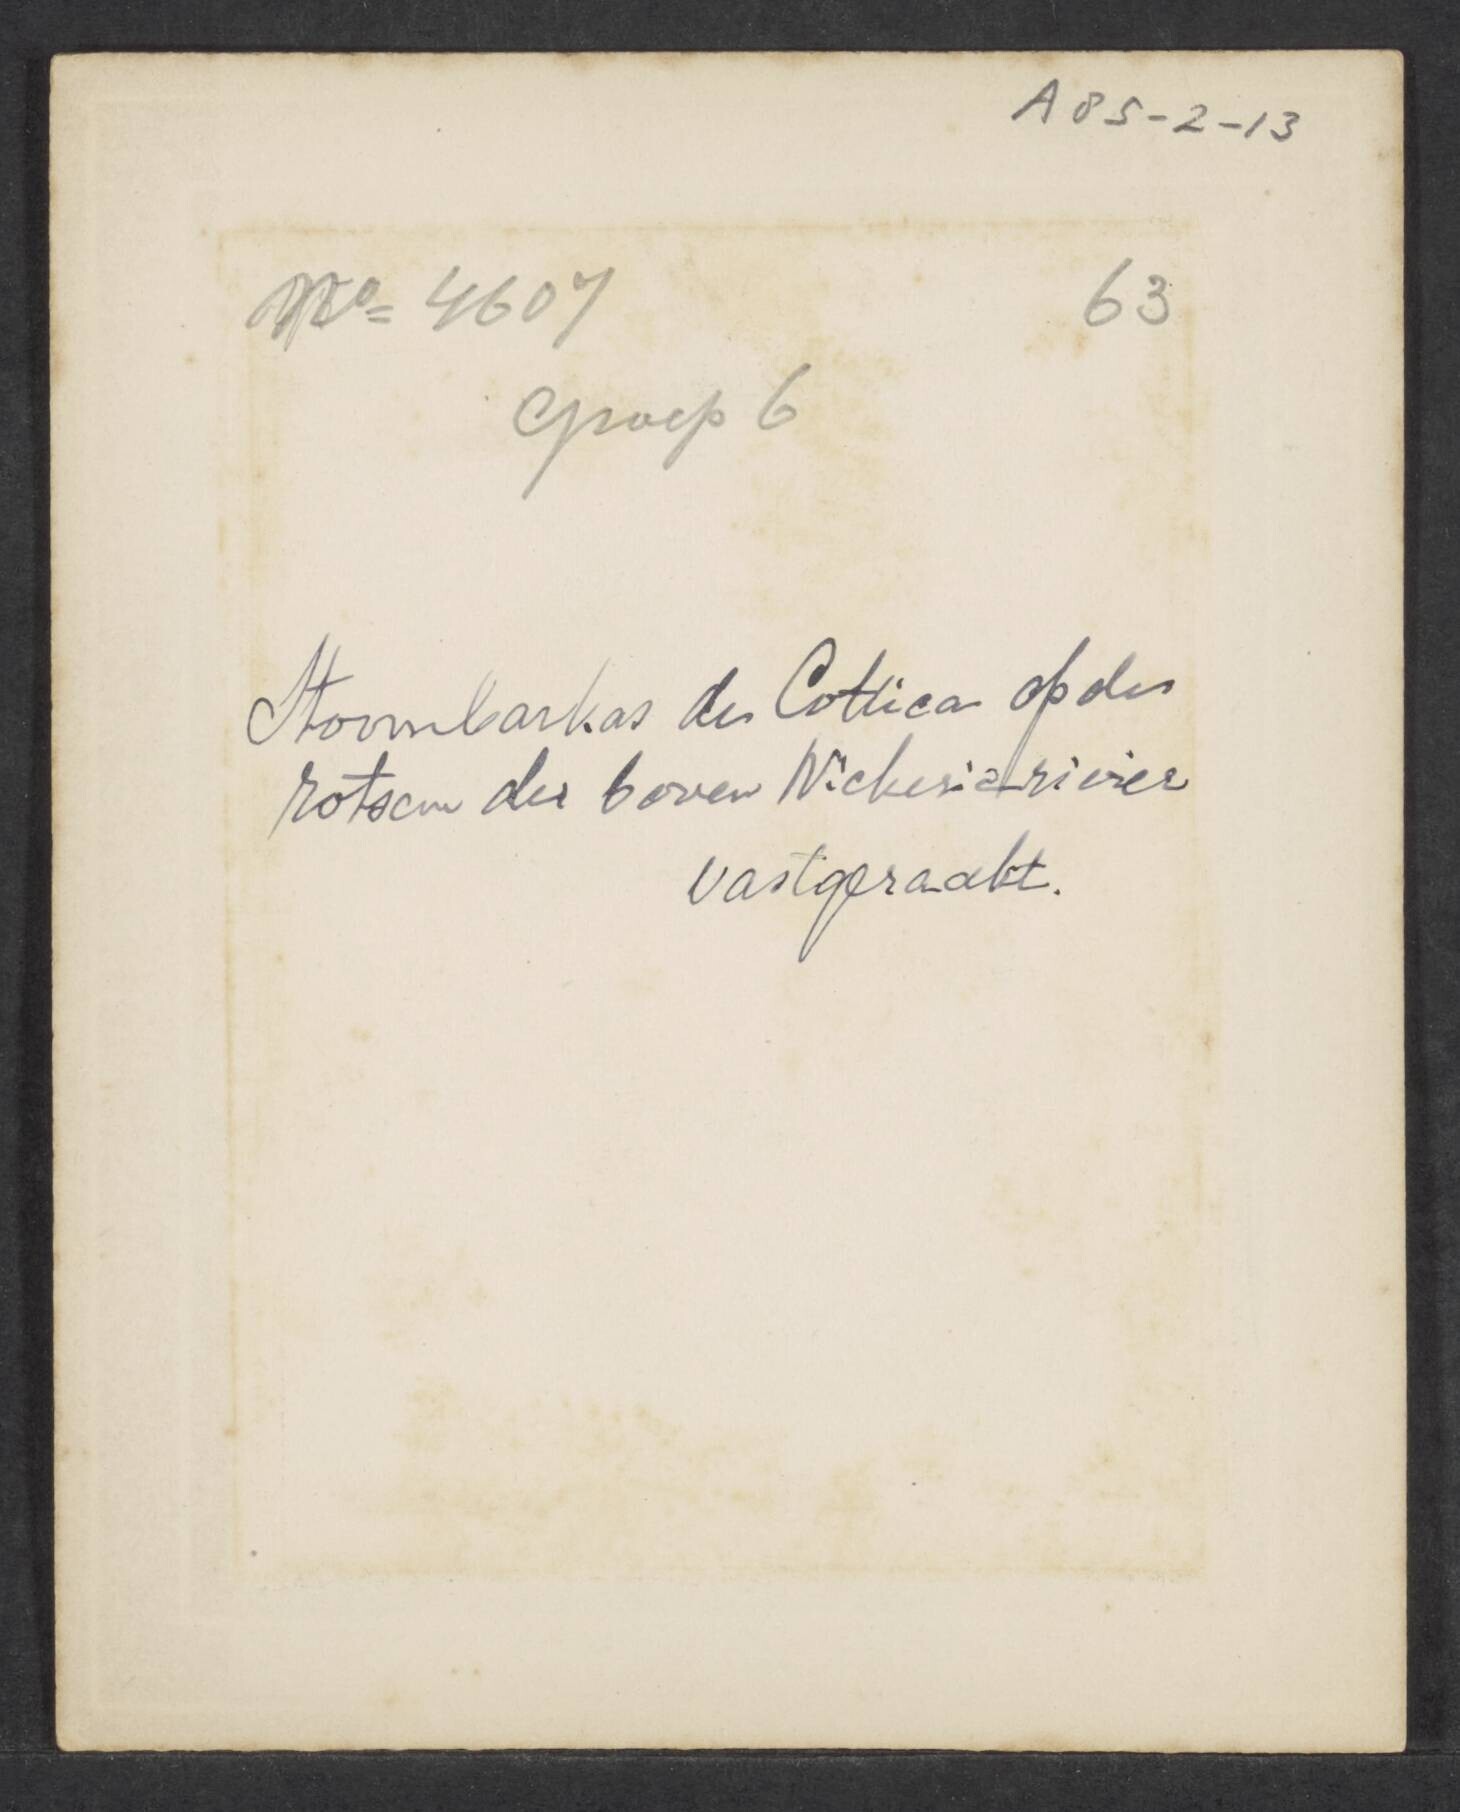 A85-2-13
No= 4607 63
Groep 6
Stoombarkas der Cottica op der
rotsen der boven Nickerie rivier
vastgeraakt.